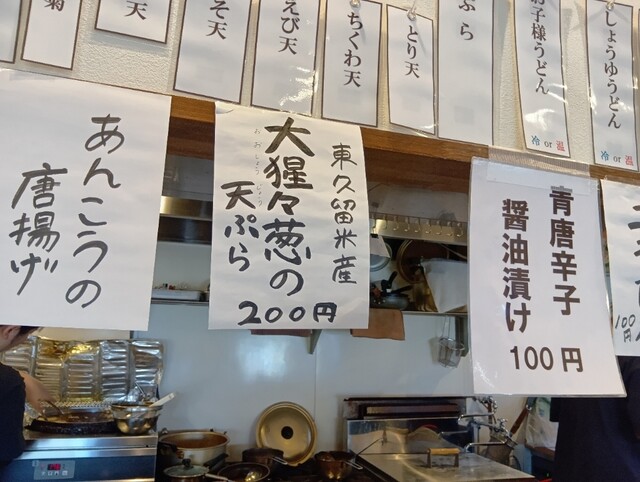 しょうゆうどん
冷 or 温
子様うどん
冷 or 温
ぷら
とり天
ちくわ天
えび天
そ天
天
菊
青唐辛子
醤油漬け
100円
東久留米産
大猩々葱の
おおしょうじょう
天ぷら
200円
あんこうの
唐揚げ
100円